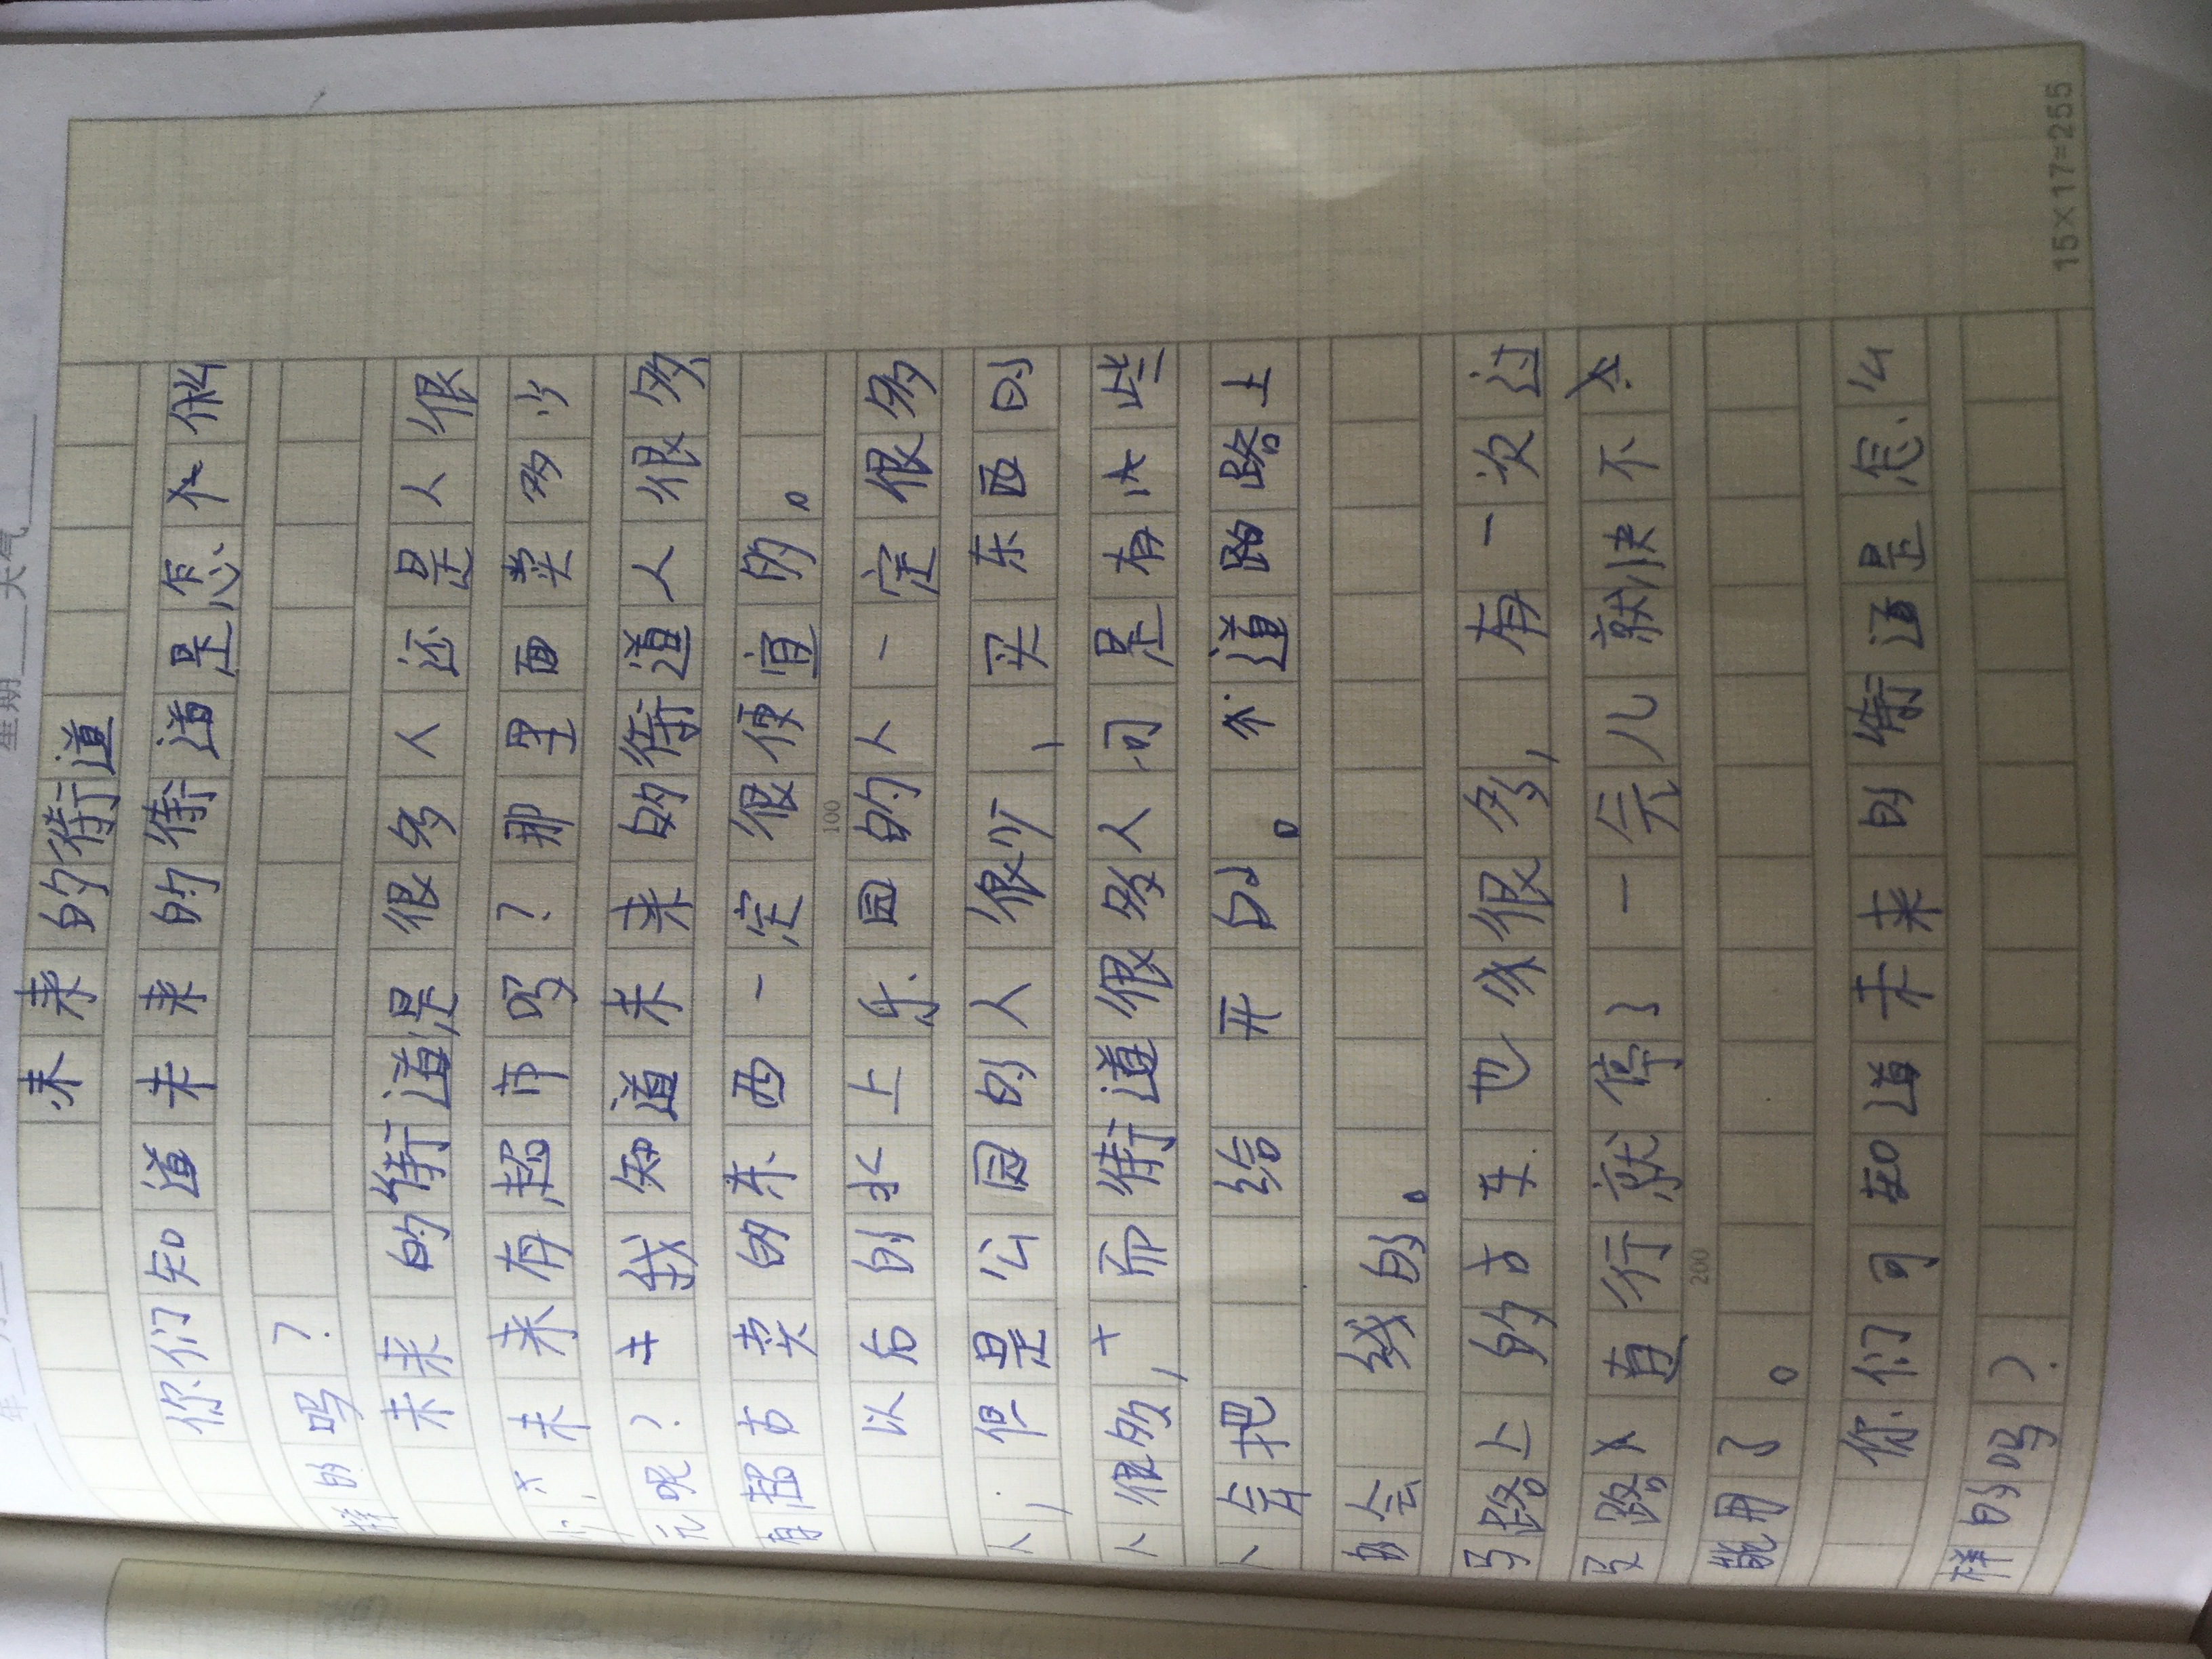 年 月 星期 天气
未来的街道
你们知道未来的街道是怎么
样的吗?
未来的街道是很多人还是人很
少?未来有超市吗?那里面卖多少
元呢?我知道未来的街道人很多
有超市卖的东西一定很便宜的。
以后的水上乐园的人一定很多
人,但是公园的人很少,买东西的
人很多,而街道很多人可是有些
人会把 给开的。 道路路上
的会 线的。
马路上的 车也 很多,有一次过
马路 直行就停了一会儿就快不
能用了。
你们可知道未来的街道是怎么
样的吗?
100
200
15×17=255